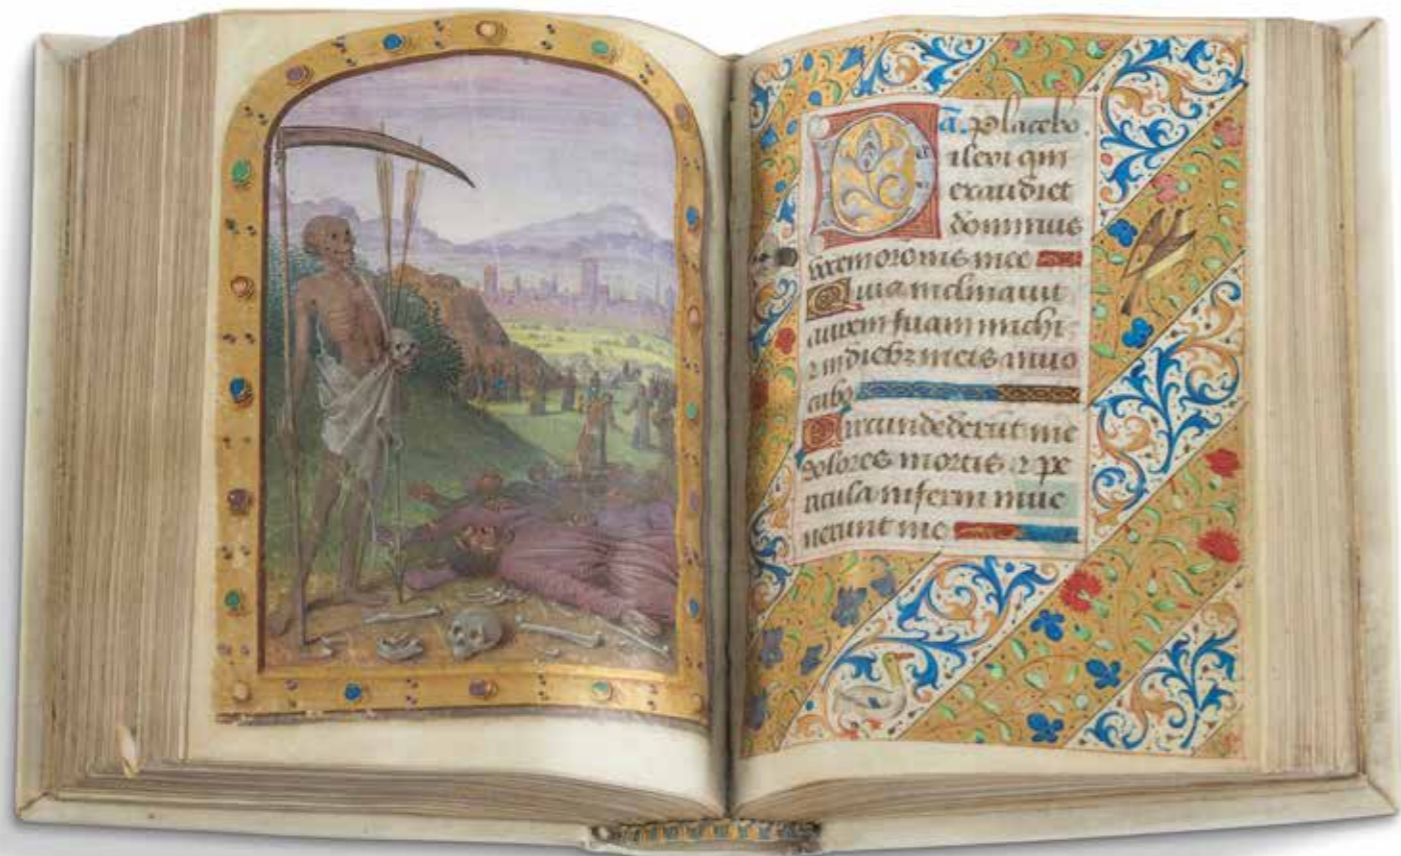 a. Placebo.
Dilexi qm
exaudiet
dominus
vocem oronis mee
Quia inclinauit
aurem suam michi
z in dieb3 meis inuo
cabo
Circundederut me
dolores mortis z pe
ricula inferni inue
nerunt me